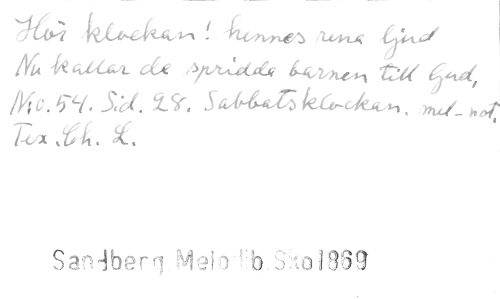 Hör klockan! hennes rena ljud
Nu kallar de spridda barnen till Gud,
N:o. 54. Sid. 28. Sabbatsklockan. mel-not.
Tex. Ch. L.
Sandberg Melodib. Sko1869